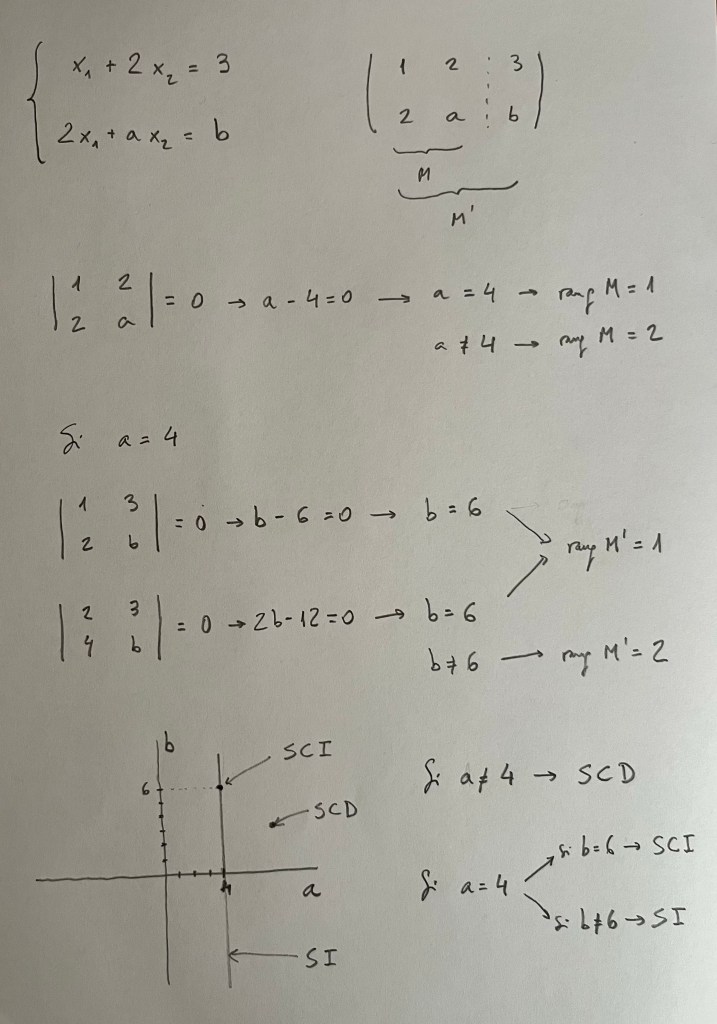 x₁ + 2 x₂ = 3
2x₁ + a x₂ = b
( 1 2 ⋮ 3 )
( 2 a ⋮ b )
M
M'
| 1 2 |
| 2 a | = 0 → a - 4 = 0 → a = 4 → rang M = 1
a ≠ 4 → rang M = 2
Si a = 4
| 1 3 |
| 2 b | = 0 → b - 6 = 0 → b = 6
rang M' = 1
| 2 3 |
| 4 b | = 0 → 2b - 12 = 0 → b = 6
b ≠ 6 → rang M' = 2
b
6
SCI
SCD
4
a
SI
Si a ≠ 4 → SCD
Si a = 4
si b = 6 → SCI
si b ≠ 6 → SI